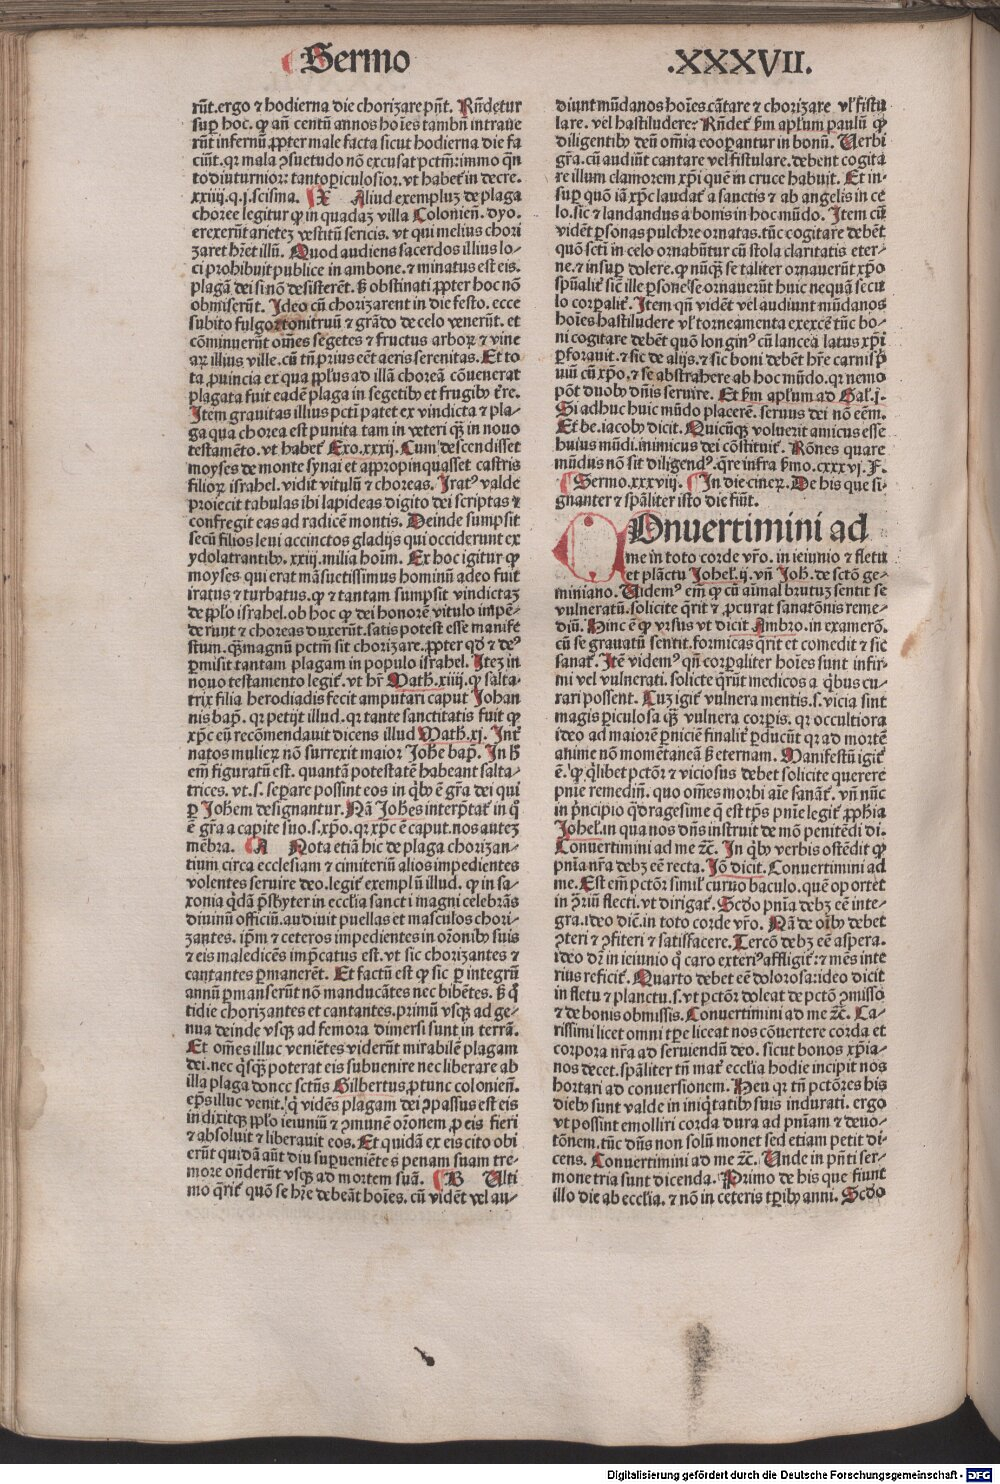 Sermo .XXXVII.
rūt.ergo ⁊ hodierna die chorizare pn̄t. Rn̄detur
suꝑ hoc. ꝙ añ centū annos hoīes tambn̄ intraue
rūt infernū ꝓpter male facta sicut hodierna die fa
ciūt.qꝛ mala ꝯsuetudo nō excusat pctm̄:immo q̄n
to diuturnior: tanto ꝑiculosior.vt habet᷑ in decre.
xxiiij.q.j.scisma. X Aliud exempluꝫ de plaga
choree legitur ꝙ in quadaꝫ villa Colonien̄. dyo.
erexerūt arieteꝫ vestitū sericis. vt qui melius chori
zaret hr̄et illū. Quod audiens sacerdos illius lo-
ci prohibuit publice in ambone. ⁊ minatus est eis.
plagā dei si nō desisterēt. ꝫ obstinati ꝓpter hoc nō
obmiserūt. Ideo cū chorizarent in die festo. ecce
subito fulgor tonitruū ⁊ grādo de celo venerūt. et
cōminuerūt om̄es segetes ⁊ fructus arboꝝ ⁊ vine
aꝝ illius ville.cū tn̄ prius eēt aeris serenitas. Et to
ta ꝓuincia ex qua ppl̄us ad illā choreā cōuenerat
plagata fuit eadē plaga in segetibꝰ et frugibꝰ t̄re.
Item grauitas illius pctī patet ex vindicta ⁊ pla-
ga qua chorea est punita tam in veteri qꝫ in nouo
testamēto. vt habet᷑ Exo.xxxij. Cum descendisset
moyses de monte synai et appropinquasset castris
filioꝝ israhel. vidit vitulū ⁊ choreas. Iratꝰ valde
proiecit tabulas ibi lapideas digito dei scriptas ⁊
confregit eas ad radicē montis. Deinde sumpsit
secū filios leui accinctos gladijs qui occiderunt ex
ydolatrantibꝰ. xxiij.milia hoīm. Ex hoc igitur ꝙ
moyses qui erat māsuetissimus hominū adeo fuit
iratus ⁊ turbatus. ꝙ ⁊ tantam sumpsit vindictaꝫ
de ppl̄o israhel. ob hoc ꝙ dei honorē vitulo impē-
derunt ⁊ choreas duxerūt. satis potest esse manife
stum. qꝫ magnū pctm̄ sit chorizare. ꝓpter qd̄ ⁊ deꝰ
ꝑmisit tantam plagam in populo israhel. Iteꝫ in
nouo testamento legit᷑. vt hr̄ Math̄.xiiij. ꝙ salta-
trix filia herodiadis fecit amputari caput Johan
nis bap̄. qꝛ petijt illud. qꝛ tante sanctitatis fuit ꝙ
xp̄c eū recōmendauit dicens illud Math̄.xj. Int᷑
natos mulieꝝ nō surrexit maior Joh̄e bap̄. In h̄
em̄ figuratū est. quantā potestatē habeant salta-
trices. vt.s. seꝑare possint eos in qͥbꝰ ē gr̄a dei qui
ꝑ Joh̄em designantur. Nā Joh̄es interp̄tat᷑ in qͦ
ē gr̄a a capite suo.s.xp̄o. qꝛ xp̄c ē caput. nos auteꝫ
mēbra. A Nota etiā hic de plaga chorizan-
tium circa ecclesiam ⁊ cimiteriū alios impedientes
volentes seruire deo. legit᷑ exemplū illud. ꝙ in sa-
xonia qͥdā p̄sbyter in eccl̄ia sancti magni celebrās
diuinū officiū. audiuit puellas et masculos chori-
zantes. ip̄m ⁊ ceteros impedientes in or̄onibꝰ suis
⁊ eis maledicēs imp̄catus est. vt sic chorizantes ⁊
cantantes ꝑmanerēt. Et factū est ꝙ sic ꝑ integrū
annū ꝑmanserūt nō manducātes nec bibētes. ꝫ qͦ
tidie chorizantes et cantantes. primū vsqꝫ ad ge-
nua deinde vsqꝫ ad femora dimersi sunt in terrā.
Et om̄es illuc veniētes viderūt mirabilē plagam
dei. nec qͥsqꝫ poterat eis subuenire nec liberare ab
illa plaga donec sctūs Gilbertus ꝓ tunc colonien̄.
ep̄s illuc venit. qͥ vidēs plagam dei ꝯpassus est eis
indixitqꝫ ppl̄o ieiuniū ⁊ ꝯmunē or̄onem ꝓ eis fieri
⁊ absoluit ⁊ liberauit eos. Et quidā ex eis cito obi
erūt quidā aūt diu suꝑueniētes penam suam tre-
more on̄derūt vsqꝫ ad mortem suā. B Ulti
mo qͥrit᷑ quō se hr̄e debeāt hoīes. cū vidēt vel au-
diunt mūdanos hoīes. cātare ⁊ chorizare vl̓ fistu
lare. vel hastiludere: Rn̄det᷑ ẜm apl̄um paulū ꝙ
diligentibꝰ deū om̄ia cooꝑantur in bonū. Verbi
gr̄a. cū audiūt cantare vel fistulare. debent cogita
re illum clamorem xp̄i quē in cruce habuit. Et in-
suꝑ quō iā xp̄c laudat᷑ a sanctis ⁊ ab angelis in ce
lo. sic ⁊ laudandus a bonis in hoc mūdo. Item cū
vidēt ꝑsonas pulchre ornatas. tūc cogitare debēt
quō sctī in celo ornabūtur cū stola claritatis eter-
ne. ⁊ insuꝑ dolere. ꝙ nūqꝫ se taliter ornauerūt xp̄o
spūalit᷑ sic̄ ille ꝑsone se ornauerūt huic nequā secu
lo corꝑalit᷑. Item qn̄ vidēt vel audiunt mūdanos
hoīes hastiludere vl̓ torneamenta exercē tūc bo-
ni cogitare debēt quō longinꝰ cū lancea latus xp̄i
ꝑforauit. ⁊ sic de alijs. ⁊ sic boni debēt hr̄e carnis p̄
uiū cū xp̄o. ⁊ se abstrahere ab hoc mūdo. qꝛ nemo
pōt duobꝰ dn̄is seruire. Et ẜm apl̄um ad Gal̓.j.
Si adhuc huic mūdo placerē. seruus dei nō eēm.
Et be.iacobꝰ dicit. Quicūqꝫ voluerit amicus esse
huius mūdi. inimicus dei cōstituit᷑. Rōnes quare
mūdus nō sit diligendꝰ. qͥre infra ẜmo.cxxxvj. F.
Sermo.xxxviij. In die cineꝝ. De his que si-
gnanter ⁊ spāliter isto die fiūt.
Onuertimini ad
me in toto corde vr̄o. in ieiunio ⁊ fletu
et plāctu Johel̓.ij. vn̄ Joh̄. de sctō ge-
miniano. Uidemꝰ em̄ ꝙ cū aīmal brutuꝫ sentit se
vulneratū. solicite qͥrit ⁊ ꝓcurat sanatōnis reme-
diū. Hinc ē ꝙ vrsus vt dicit Ambro. in examerō.
cū se grauatū sentit. formicas qͥrit et comedit ⁊ sic
sanat᷑. Itē videmꝰ qn̄ corꝑaliter hoīes sunt infir-
mi vel vulnerati. solicite qͥrūt medicos a qͥbus cu-
rari possent. Cuꝫ igit᷑ vulnera mentis.s. vicia sint
magis ꝑiculosa qꝫ vulnera corꝑis. qꝛ occultiora
ideo ad maiorē ꝑniciē finalit᷑ ꝑducūt qꝛ ad mortē
anime nō momētaneā ꝫ eternam. Manifestū igit᷑
ē. ꝙ qͥlibet pctōr ⁊ viciosus debet solicite querere
pnīe remediū. quo om̄es morbi aīe sanāt᷑. vn̄ nūc
in p̄ncipio qͣdragesime q̄ est tp̄s pnīe legit᷑ ꝓph̄ia
Johel̓. in qua nos dn̄s instruit de mō penitēdi di.
Conuertimini ad me ⁊c̄. In qͥbꝰ verbis ostēdit ꝙ
pnīa nr̄a debꝫ eē recta. Iō dicit. Conuertimini ad
me. Est em̄ pctōr simil᷑ curuo baculo. quē oportet
in ꝯriū flecti. vt dirigat᷑. Scdo pnīa debꝫ eē inte-
gra. ideo dic̄. in toto corde vr̄o. Nā de oībꝰ debet
ꝯteri ⁊ ꝯfiteri ⁊ satisfacere. Tercō debꝫ eē aspera.
ideo dr̄ in ieiunio qͦ caro exteriꝰ affligit᷑: ⁊ mēs inte
rius reficit᷑. Quarto debet eē dolorosa: ideo dicit
in fletu ⁊ planctu.s. vt pctōr doleat de pctō ꝯmisso
⁊ de bonis obmissis. Conuertimini ad me ⁊c̄. Ca-
rissimi licet omni tꝑe liceat nos cōuertere corda et
corpora nr̄a ad seruiendū deo. sicut bonos xp̄ia-
nos decet. spāliter tn̄ mat᷑ eccl̄ia hodie incipit nos
hortari ad conuersionem. Heu qꝛ tn̄ pctōres his
diebꝰ sunt valde in iniqͥtatibꝰ suis indurati. ergo
vt possint emolliri corda dura ad pnīam ⁊ deuo-
tōnem. tūc dn̄s non solū monet sed etiam petit di-
cens. Conuertimini ad me ⁊c̄. Unde in pn̄ti ser-
mone tria sunt dicenda. Primo de his que fiunt
illo die ab eccl̄ia. ⁊ nō in ceteris tꝑibꝰ anni. Scdo
Digitalisierung gefördert durch die Deutsche Forschungsgemeinschaft - DFG